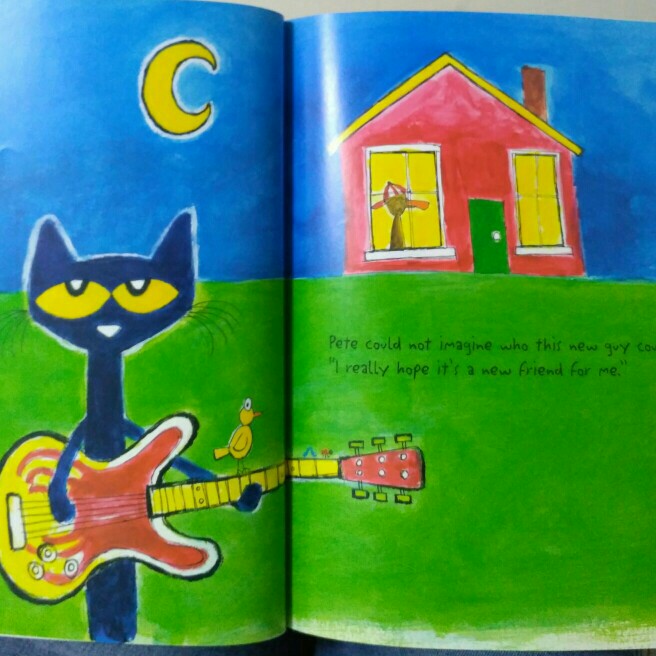 Pete could not imagine who this new guy cou
"I really hope it's a new friend for me."